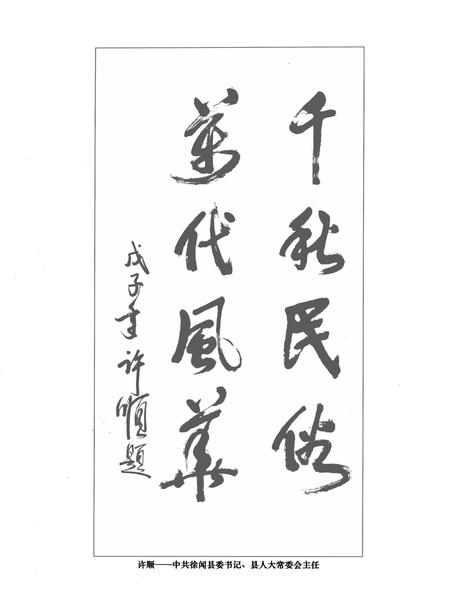 千秋民俗
萬代風華
戊子年 许顺题
许顺——中共徐闻县委书记、县人大常委会主任